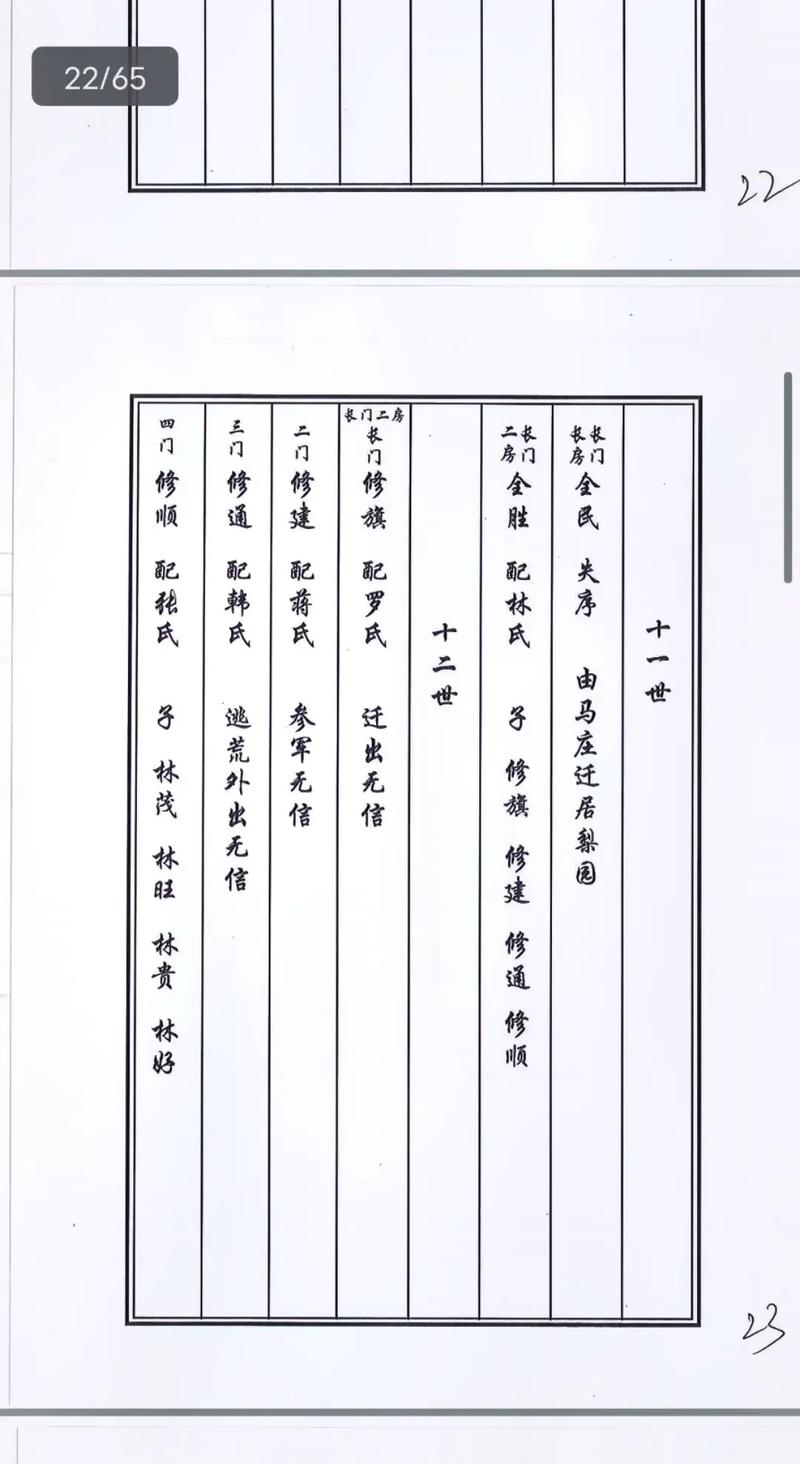 22/65
22
十一世
长门长房 全民 失序 由马庄迁居梨园
长门二房 全胜 配林氏 子 修旗 修建 修通 修顺
十二世
长门二房
长门 修旗 配罗氏 迁出无信
二门 修建 配蒋氏 参军无信
三门 修通 配韩氏 逃荒外出无信
四门 修顺 配张氏 子 林茂 林旺 林贵 林好
23